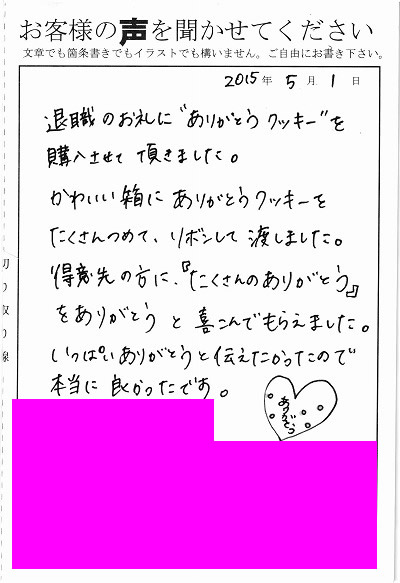 お客様の声を聞かせてください
文章でも箇条書きでもイラストでも構いません。ご自由にお書き下さい。
2015年 5月 1日
退職のお礼に"ありがとうクッキー"を
購入させて頂きました。
かわいい箱にありがとうクッキーを
たくさんつめて、リボンして渡しました。
得意先の方に、『たくさんのありがとう』
をありがとうと喜こんでもらえました。
いっぱいありがとうと伝えたかったので
本当に良かったです。
ありがとう
切り取り線